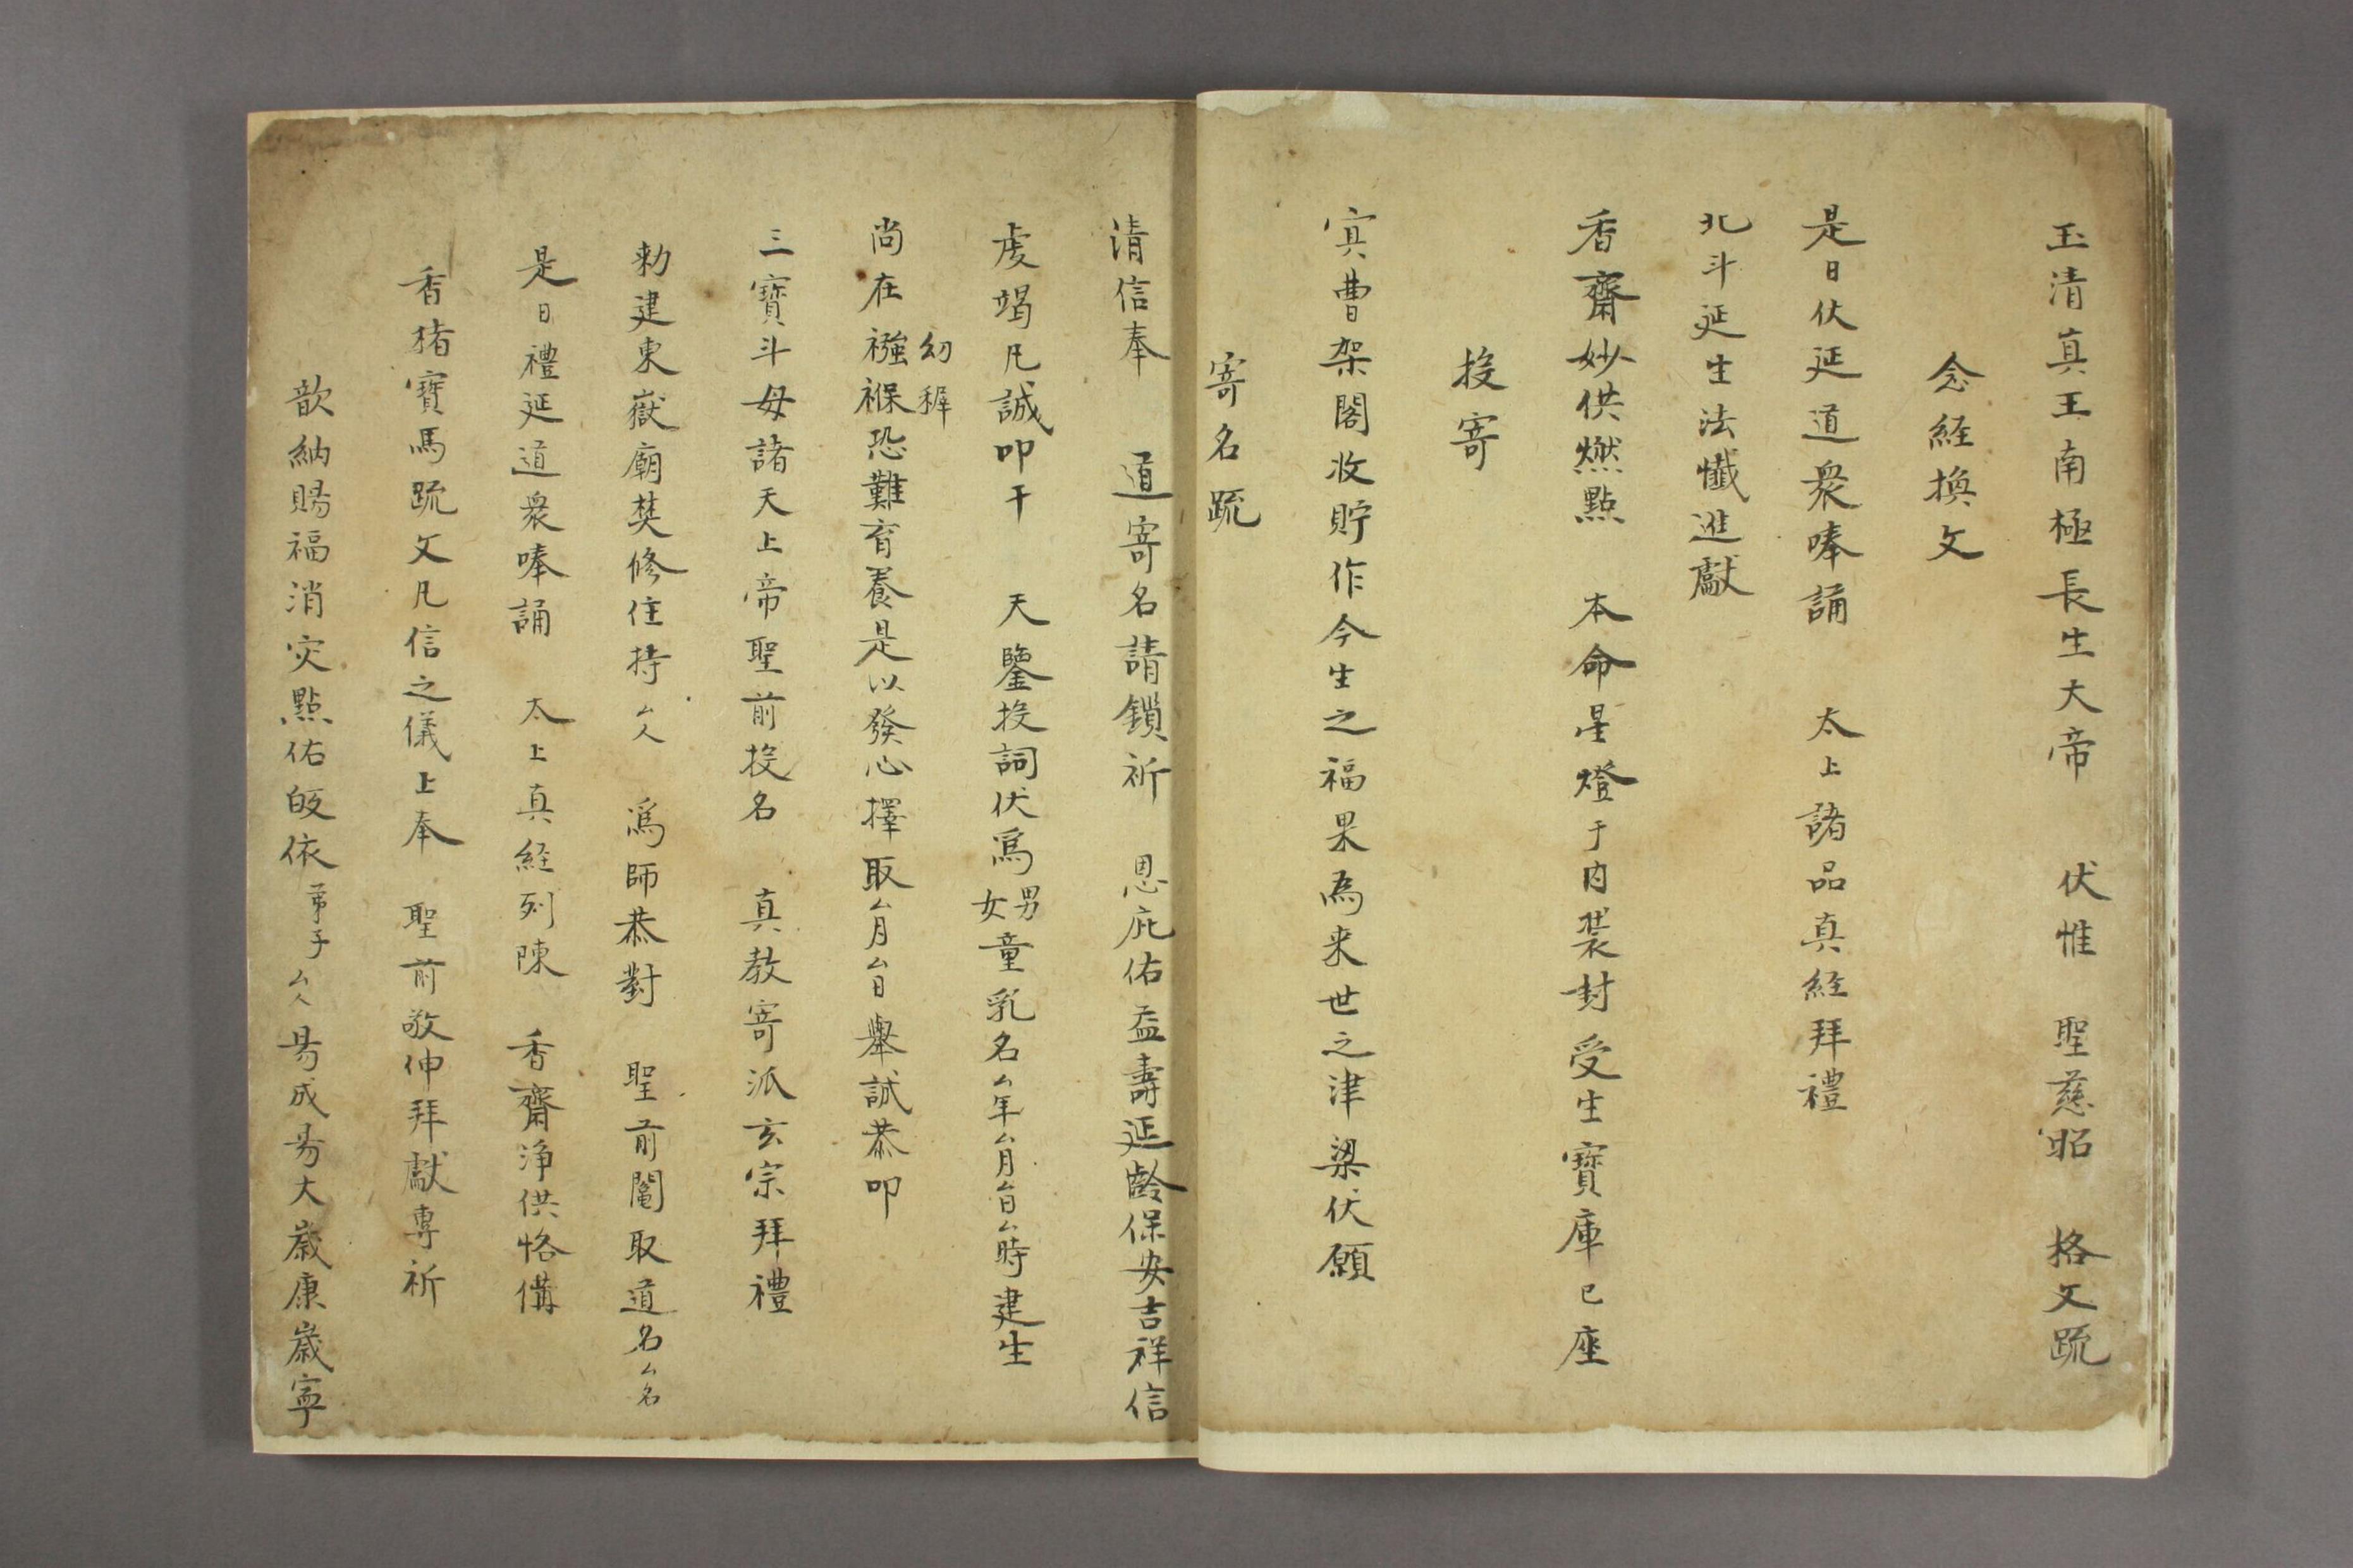 玉清真王南極長生大帝 伏惟 聖慈昭 格文䟽
念経換文
是日伏延道衆唪誦 太上諸品真経拜禮
北斗延生法懺進獻
香齋妙供燃點 本命星燈于內裝封受生寶庫已座
投寄
冥曹架閣收貯作今生之福果為来世之津梁伏願
寄名䟽
清信奉 道寄名請鎖祈 恩庇佑益壽延齡保安吉祥信
虔竭凡誠叩干 天鑒投詞伏爲男女童乳名厶年厶月厶日厶時建生
幼穉
尚在襁褓恐難育養是以發心擇取厶月厶日舉誠恭叩
三寶斗母諸天上帝聖前投名 真教寄派玄宗拜禮
勅建東嶽廟焚修住持厶人 爲師恭對 聖前鬮取道名厶名
是日禮延道衆唪誦 太上真経列陳 香齋浄供恪備
香猪寶馬䟽文凡信之儀上奉 聖前敬伸拜獻專祈
歆納賜福消灾點佑皈依弟子厶人昜成昜大歲康歲寧